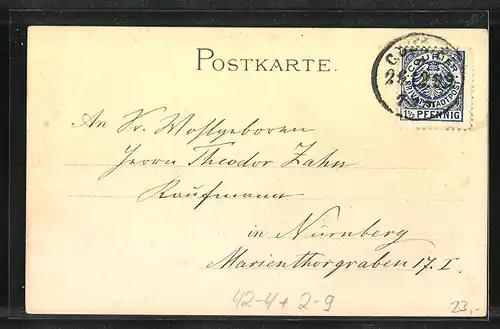 POSTKARTE.
COURIER
PRIVAT-STADTPOST
1½ PFENNIG
An Sr. Wohlgeboren
Herrn Theodor Zahn
Kaufmann
in Nürnberg
Marienthorgraben 17. I.
42-4+2-9
23,-